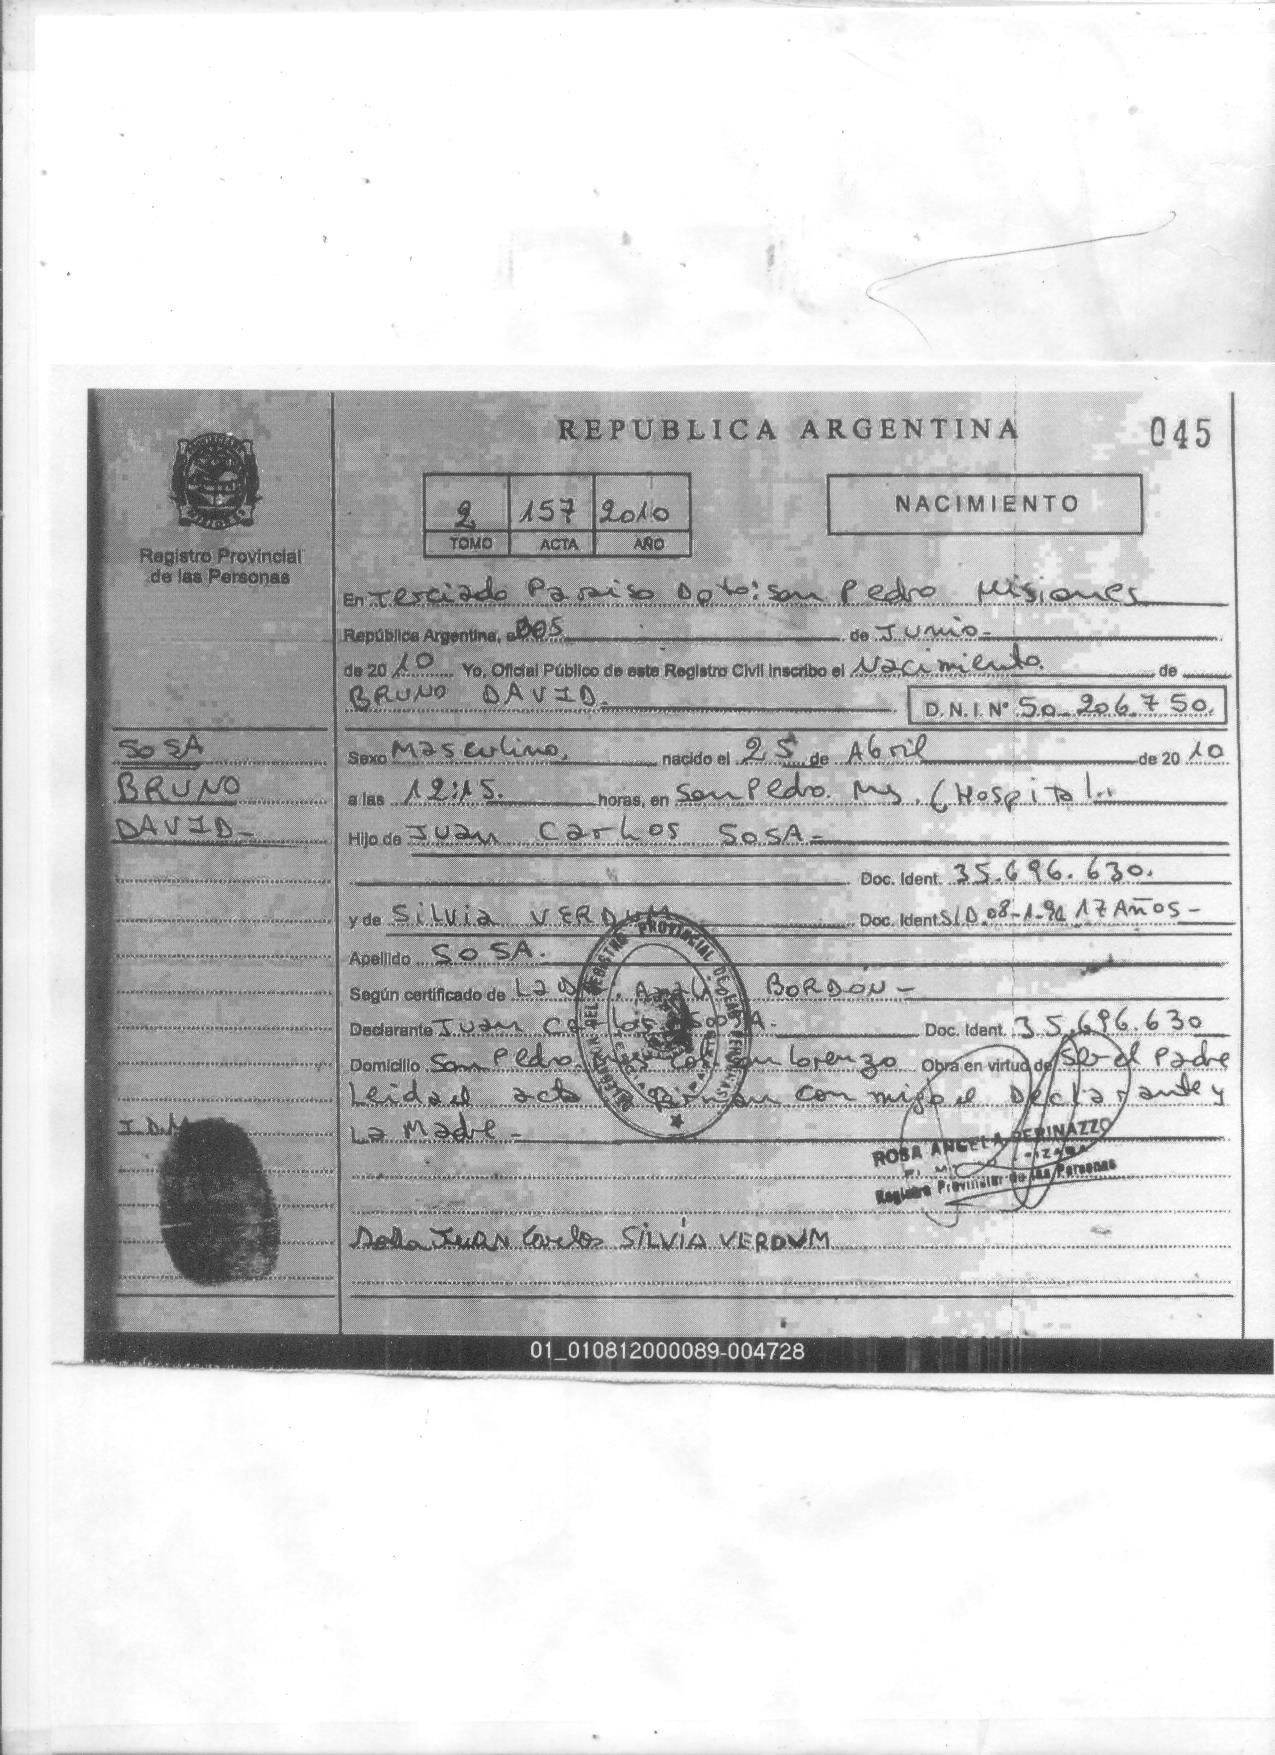 REPUBLICA ARGENTINA
045
2 157 2010
TOMO ACTA AÑO
NACIMIENTO
Registro Provincial
de las Personas
En Terciado Paraiso Dpto: San Pedro Misiones
República Argentina, a 005 de Junio
de 2010 Yo, Oficial Público de este Registro Civil inscribo el Nacimiento de
BRUNO DAVID. D.N.I. Nº 50.206.750.
SOSA
BRUNO
DAVID
Sexo Masculino, nacido el 25 de Abril de 2010
a las 12:15. horas, en San Pedro. Ms. (Hospital..
Hijo de Juan Carlos SOSA
Doc. Ident. 35.696.630.
y de Silvia VERDUM Doc. Ident S/D. 08-1- 17 Años -
Apellido SOSA.
Según certificado de La BORDON -
Declarante Juan Doc. Ident. 35.696.630
Domicilio San Pedro Lorenzo Obra en virtud de Ser el Padre
Leida el acta firman con migo el Declarante y
La Madre -
I.D.M
ROSA ANGELA PERINAZZO
Registro Provincial de las Personas
JUAN Carlos SILVIA VERDUM
01_010812000089-004728